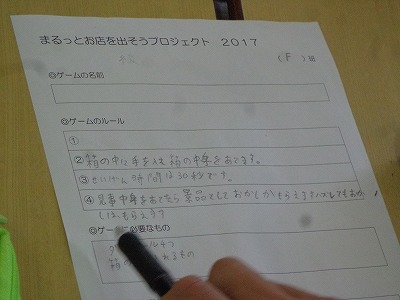 まるっとお店を出そうプロジェクト 2017
( F ) 組
◎ゲームの名前
◎ゲームのルール
①
②箱の中に手を入れ箱の中身をあてます。
③せいげん時間は30秒です。
④見事中身をあてたら景品としておかしがもらえます!ハズレてもおか
しは、もらえます
◎ゲームに必要なもの
箱 れるもの